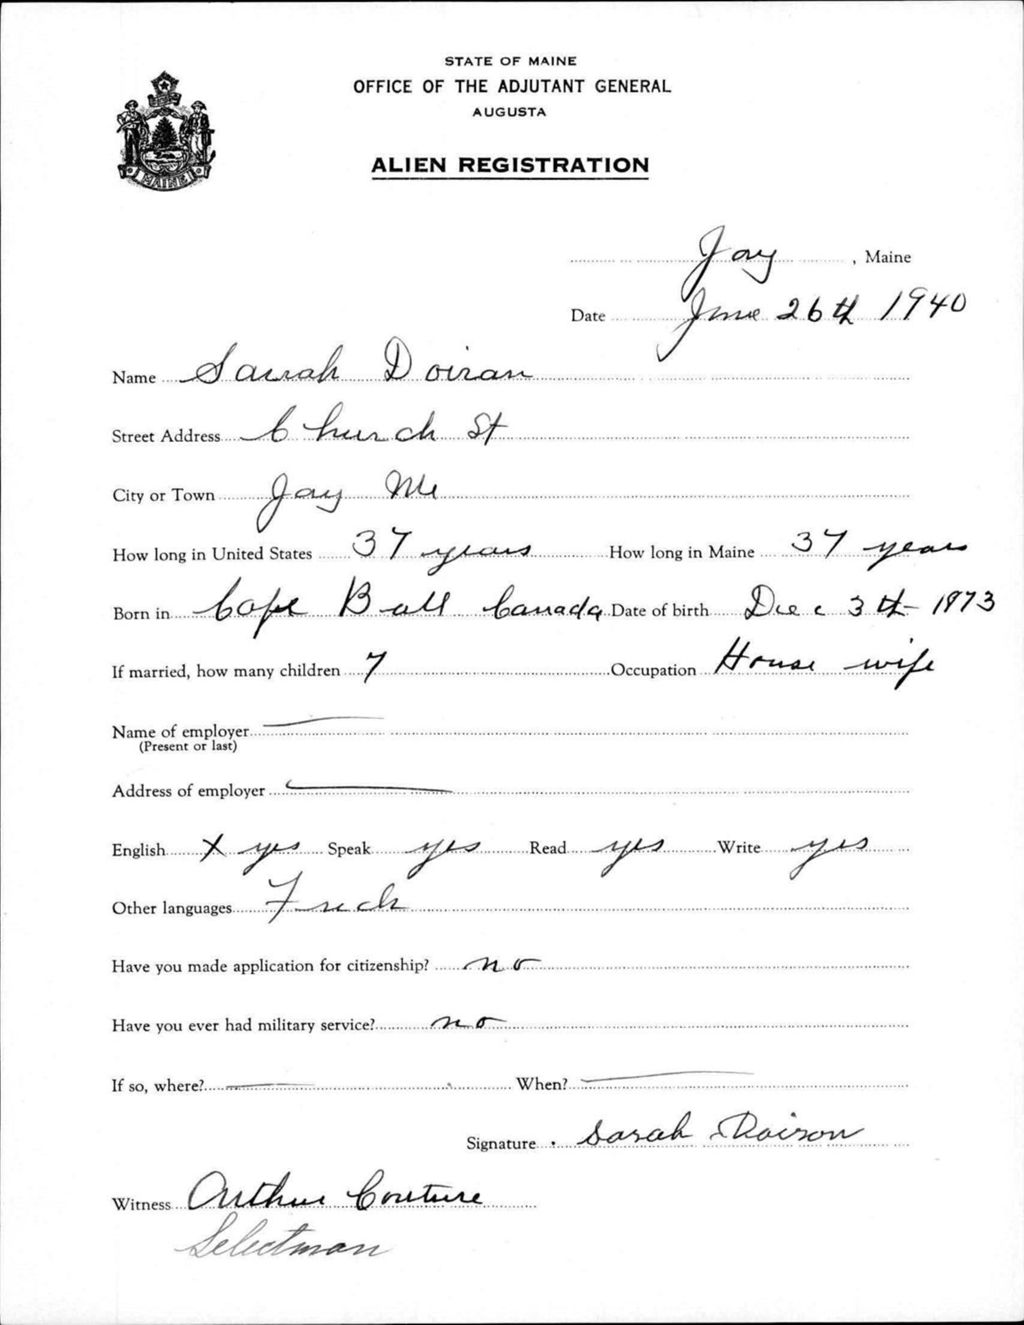 STATE OF MAINE
OFFICE OF THE ADJUTANT GENERAL
AUGUSTA
ALIEN REGISTRATION
MAINE
Jay, Maine
Date June 26th 1940
Name Sarah Doiran
Street Address Church St
City or Town Jay Me
How long in United States 37 years How long in Maine 37 years
Born in Cape Ball Canada Date of birth Dec 3th 1873
If married, how many children 7 Occupation House wife
Name of employer
(Present or last)
Address of employer
English X yes Speak yes Read yes Write yes
Other languages French
Have you made application for citizenship? no
Have you ever had military service? no
If so, where? When?
Signature Sarah Doiron
Witness Arthur Couture
Selectman